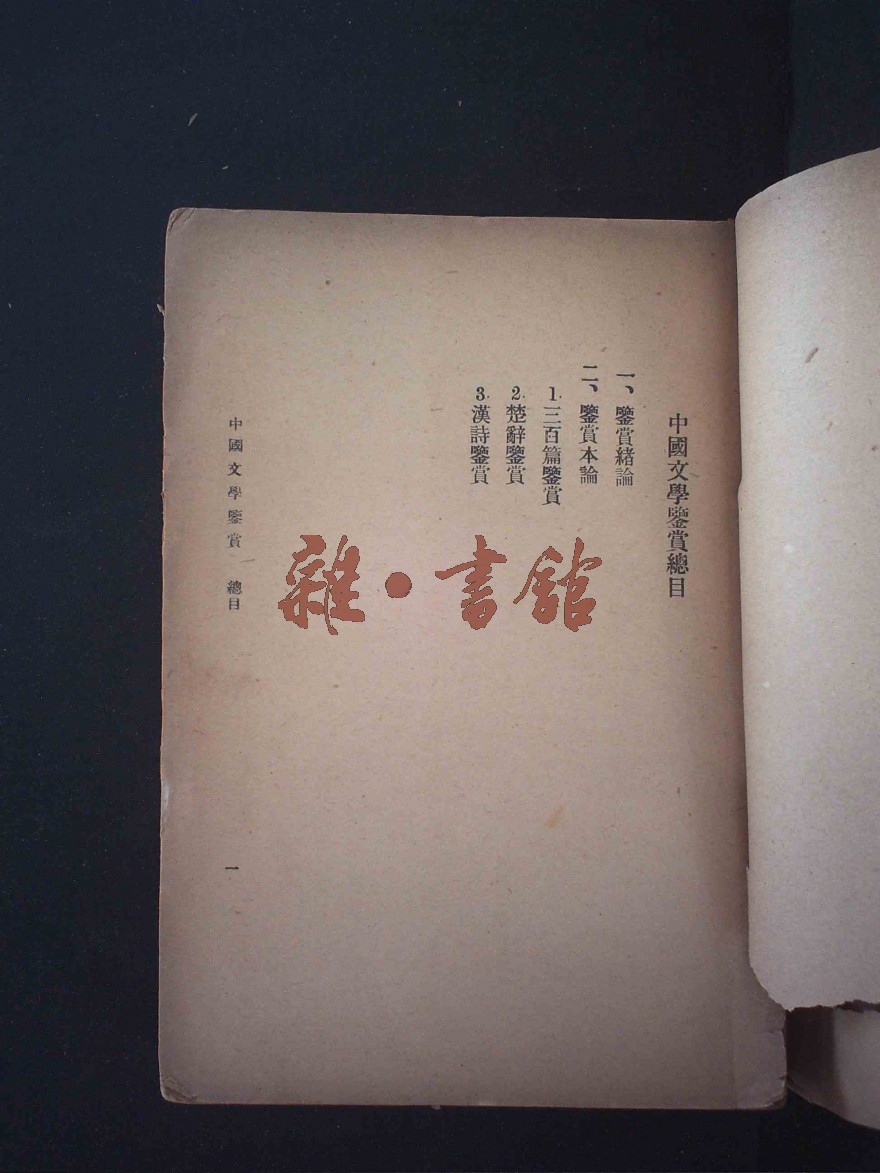 中國文學鑒賞總目
一、鑒賞緒論
二、鑒賞本論
1.三百篇鑒賞
2.楚辭鑒賞
3.漢詩鑒賞
中國文學鑒賞 總目
一
雜·書館